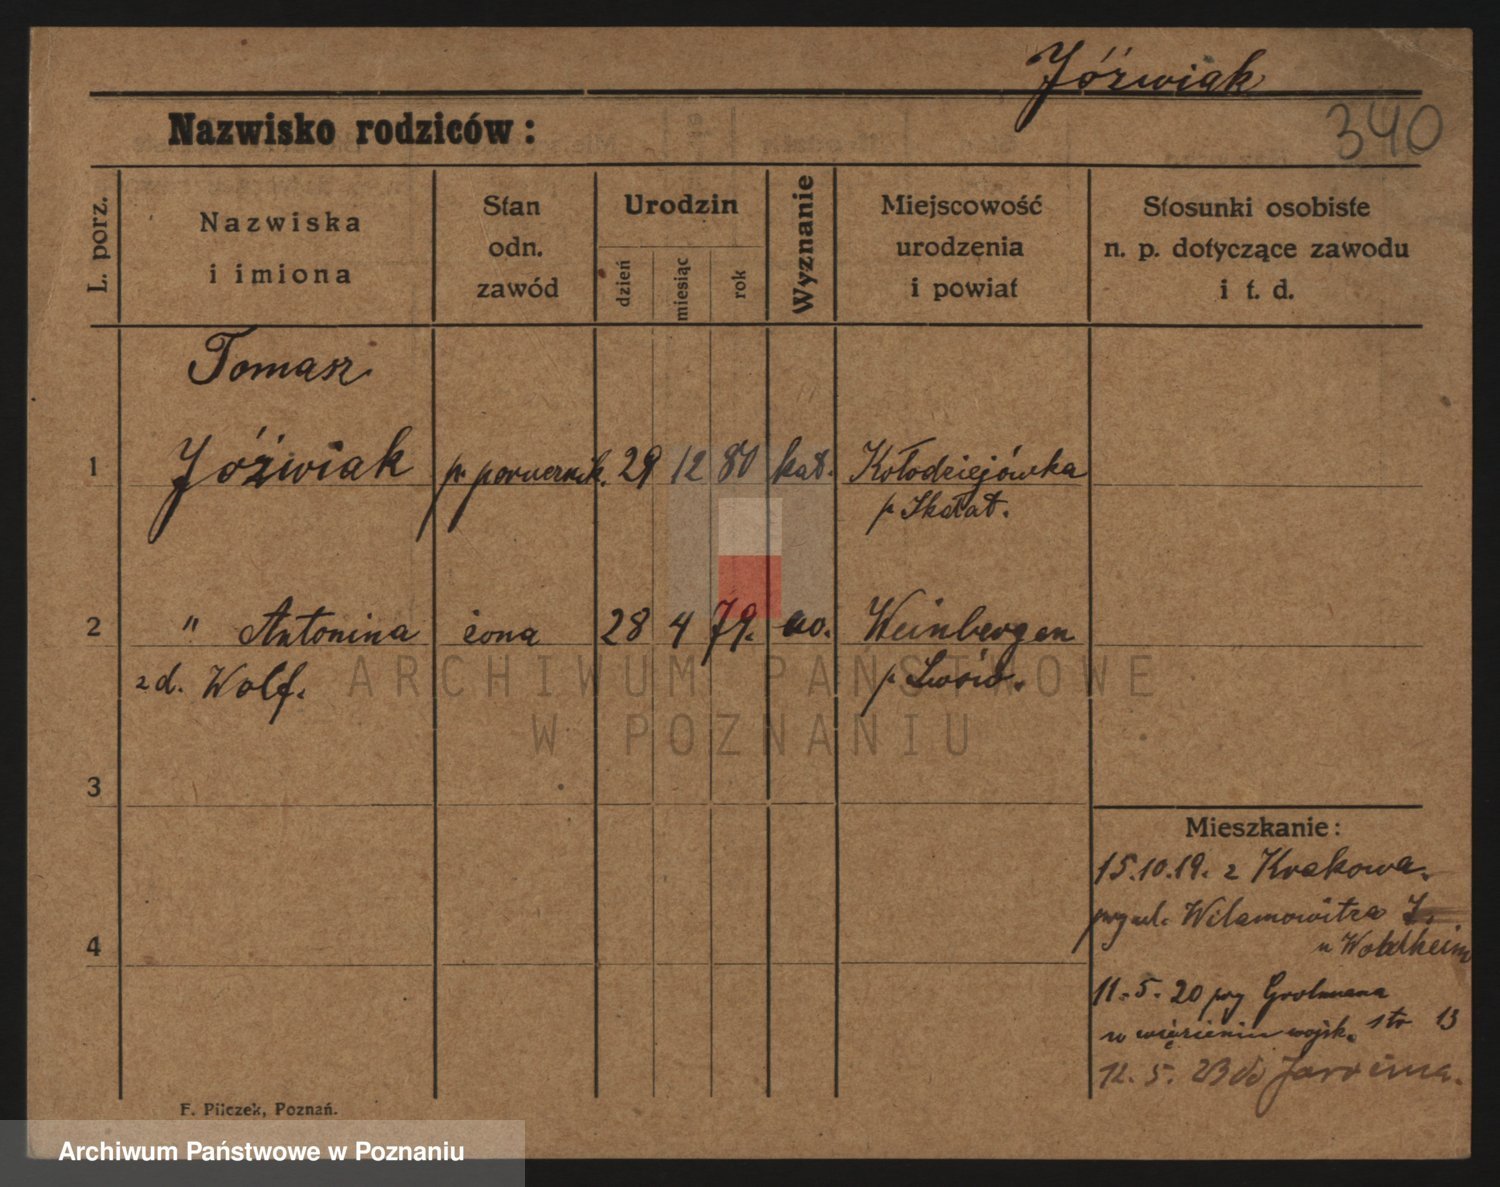 Jóźwiak
340
Nazwisko rodziców:
L. porz.
Nazwiska
i imiona
Stan
odn.
zawód
Urodzin
dzień
miesiąc
rok
Wyznanie
Miejscowość
urodzenia
i powiat
Stosunki osobiste
n. p. dotyczące zawodu
i t. d.
Tomasz
1 Jóźwiak p. porucznik. 29 12 80 kat. Kołodziejówka
p. Skałat.
2 " Antonina żona 28 4 79. Weinbergen
z d. Wolf. p. Lwów.
ARCHIWUM PAŃSTWOWE
W POZNANIU
3
4
Mieszkanie:
15.10.19. z Krakowa.
przy ul. Wilamowitza
u Woldheim
11.5.20 przy Grolmana
w więzieniu wojsk. 13
12. 5. 23 do
F. Pilczek, Poznań.
Archiwum Państwowe w Poznaniu